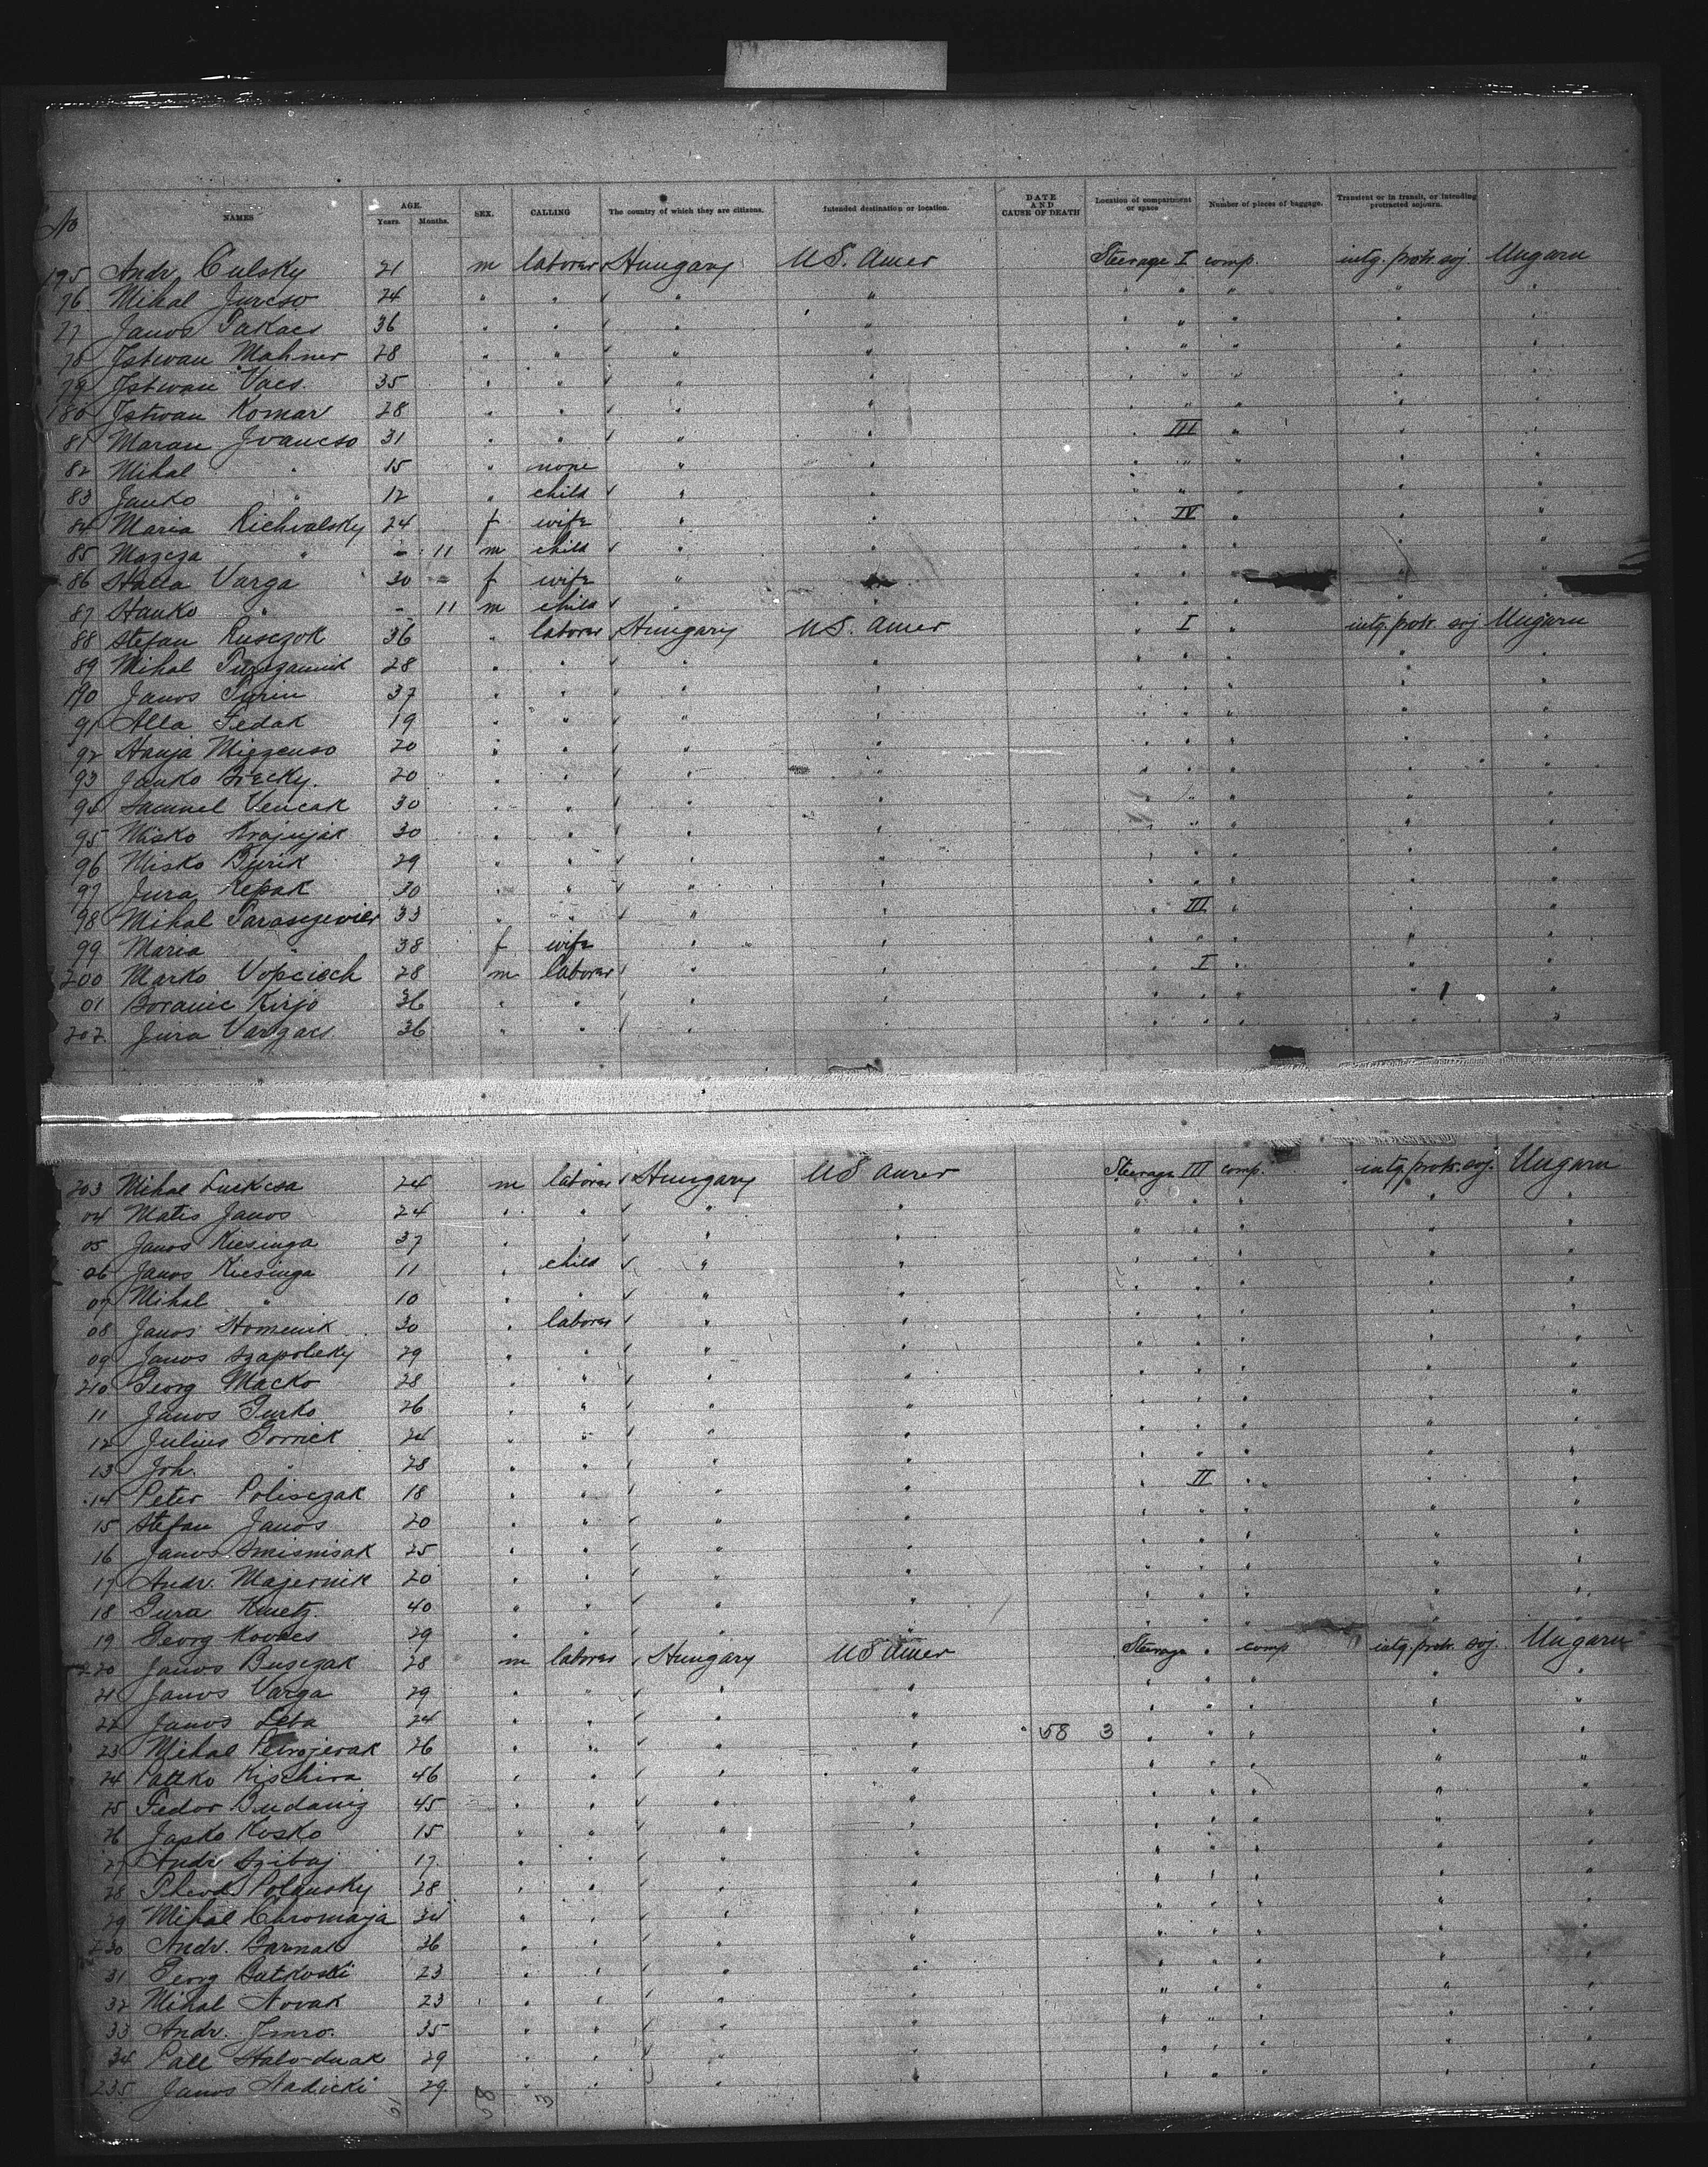 No NAMES AGE. Years. Months. SEX. CALLING The country of which they are citizens. Intended destination or location. DATE AND CAUSE OF DEATH Location of compartment or space Number of pieces of baggage. Transient or in transit, or intending protracted sojourn.
175 Andr. Culsky 21 m laborer Hungary U.S. Amer Steerage I comp. intg. protr. soj. Ungarn
76 Mihal Jurcso 24 " " " " " " " " "
77 Janos Takacs 36 " " " " " " " " "
78 Istwan Mohner 28 " " " " " " " " "
79 Istwan Vacs. 35 " " " " " " " " "
180 Istwan Komar 28 " " " " " " " " "
81 Maran Ivancso 31 " " " " " III " " "
82 Mihal " 15 " none " " " " " " "
83 Janko " 12 " child " " " " " " "
84 Maria Richvalsky 24 f wife " " " IV " " "
85 " - 11 m child " " " " " " "
86 Varga 30 - f wife " " " " " " "
87 Hanko " - 11 m child " " " " " " "
88 Stefan Rusczok 36 " laborer Hungary U.S. Amer " I " intg. protr. soj Ungarn
89 Mihal 28 " " " " " " " " "
190 Janos Turin 37 " " " " " " " " "
91 Alla Fedak 19 " " " " " " " " "
92 Hanja 20 " " " " " " " " "
93 Janko 20 " " " " " " " " "
94 Samuel Vencak 30 " " " " " " " " "
95 Misko Krajnjak 30 " " " " " " " " "
96 Misko Burik 29 " " " " " " " " "
97 Jura Repak 30 " " " " " " " " "
98 Mihal 33 " " " " " III " " "
99 Maria " 38 f wife " " " " " " "
200 Marko Vopcisch 28 m laborer " " " I " " "
01 Kirjo 36 " " " " " " " " "
202 Jura Vargacs. 36 " " " " " " " " "
203 Mihal Luckcsa 24 m laborer Hungary U S Amer Steerage III comp. intg. protr. soj. Ungarn
04 Matis Janos 24 " " " " " " " " "
05 Janos Kicsinga 37 " " " " " " " " "
06 Janos Kicsinga 11 " child " " " " " " "
07 Mihal " 10 " " " " " " " " "
08 Janos Homenik 30 " laborer " " " " " " "
09 Janos Szapolsky 29 " " " " " " " " "
210 Georg Macko 28 " " " " " " " " "
11 Janos Gurko 26 " " " " " " " " "
12 Julius Gornick 24 " " " " " " " " "
13 Joh. " 28 " " " " " " " " "
14 Peter Polisczak 18 " " " " " II " " "
15 Stefan Janos 20 " " " " " " " " "
16 Janos Smisnisak 25 " " " " " " " " "
17 Andr. Majernik 20 " " " " " " " " "
18 Jura Kmetz. 40 " " " " " " " " "
19 Georg Kovacs 29 " " " " " " " " "
220 Janos Busczak 28 m laborer Hungary U S Amer Steerage " comp intg. protr. soj. Ungarn
21 Janos Varga 29 " " " " " " " " "
22 Janos Leba 24 " " " " " " " " "
58 3
23 Mihal 26 " " " " " " " " "
24 Pattko Kischira 46 " " " " " " " " "
25 Fedor Budanig 45 " " " " " " " " "
26 Jasko Kosko 15 " " " " " " " " "
27 Andr Szibaj 17. " " " " " " " " "
28 Theod. Polansky 28 " " " " " " " " "
29 Mihal Chromaya 34 " " " " " " " " "
230 Andr. Barnak 36 " " " " " " " " "
31 Georg Batkoski 23 " " " " " " " " "
32 Mihal Novak 23 " " " " " " " " "
33 Andr. Imro. 35 " " " " " " " " "
34 Pall 29 " " " " " " " " "
235 Janos Nadicki 29. " " " " " " " " "
58 3